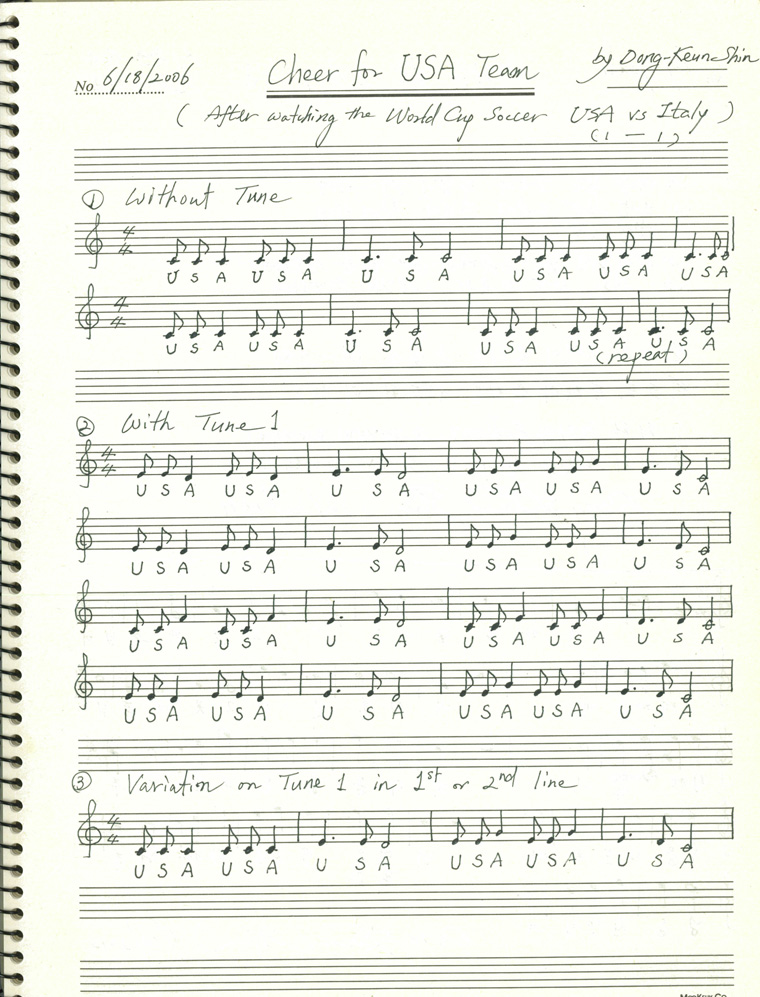 No. 6/18/2006 Cheer for USA Team by Dong-Keun-Shin
( After watching the World Cup Soccer USA vs Italy )
(1 — 1)
① Without Tune
4 4
U S A U S A U S A U S A U S A U S A
4 4
U S A U S A U S A U S A U S A U S A
(repeat)
② With Tune 1
4 4
U S A U S A U S A U S A U S A U S A
U S A U S A U S A U S A U S A U S A
U S A U S A U S A U S A U S A U S A
U S A U S A U S A U S A U S A U S A
③ Variation on Tune 1 in 1st or 2nd line
4 4
U S A U S A U S A U S A U S A U S A